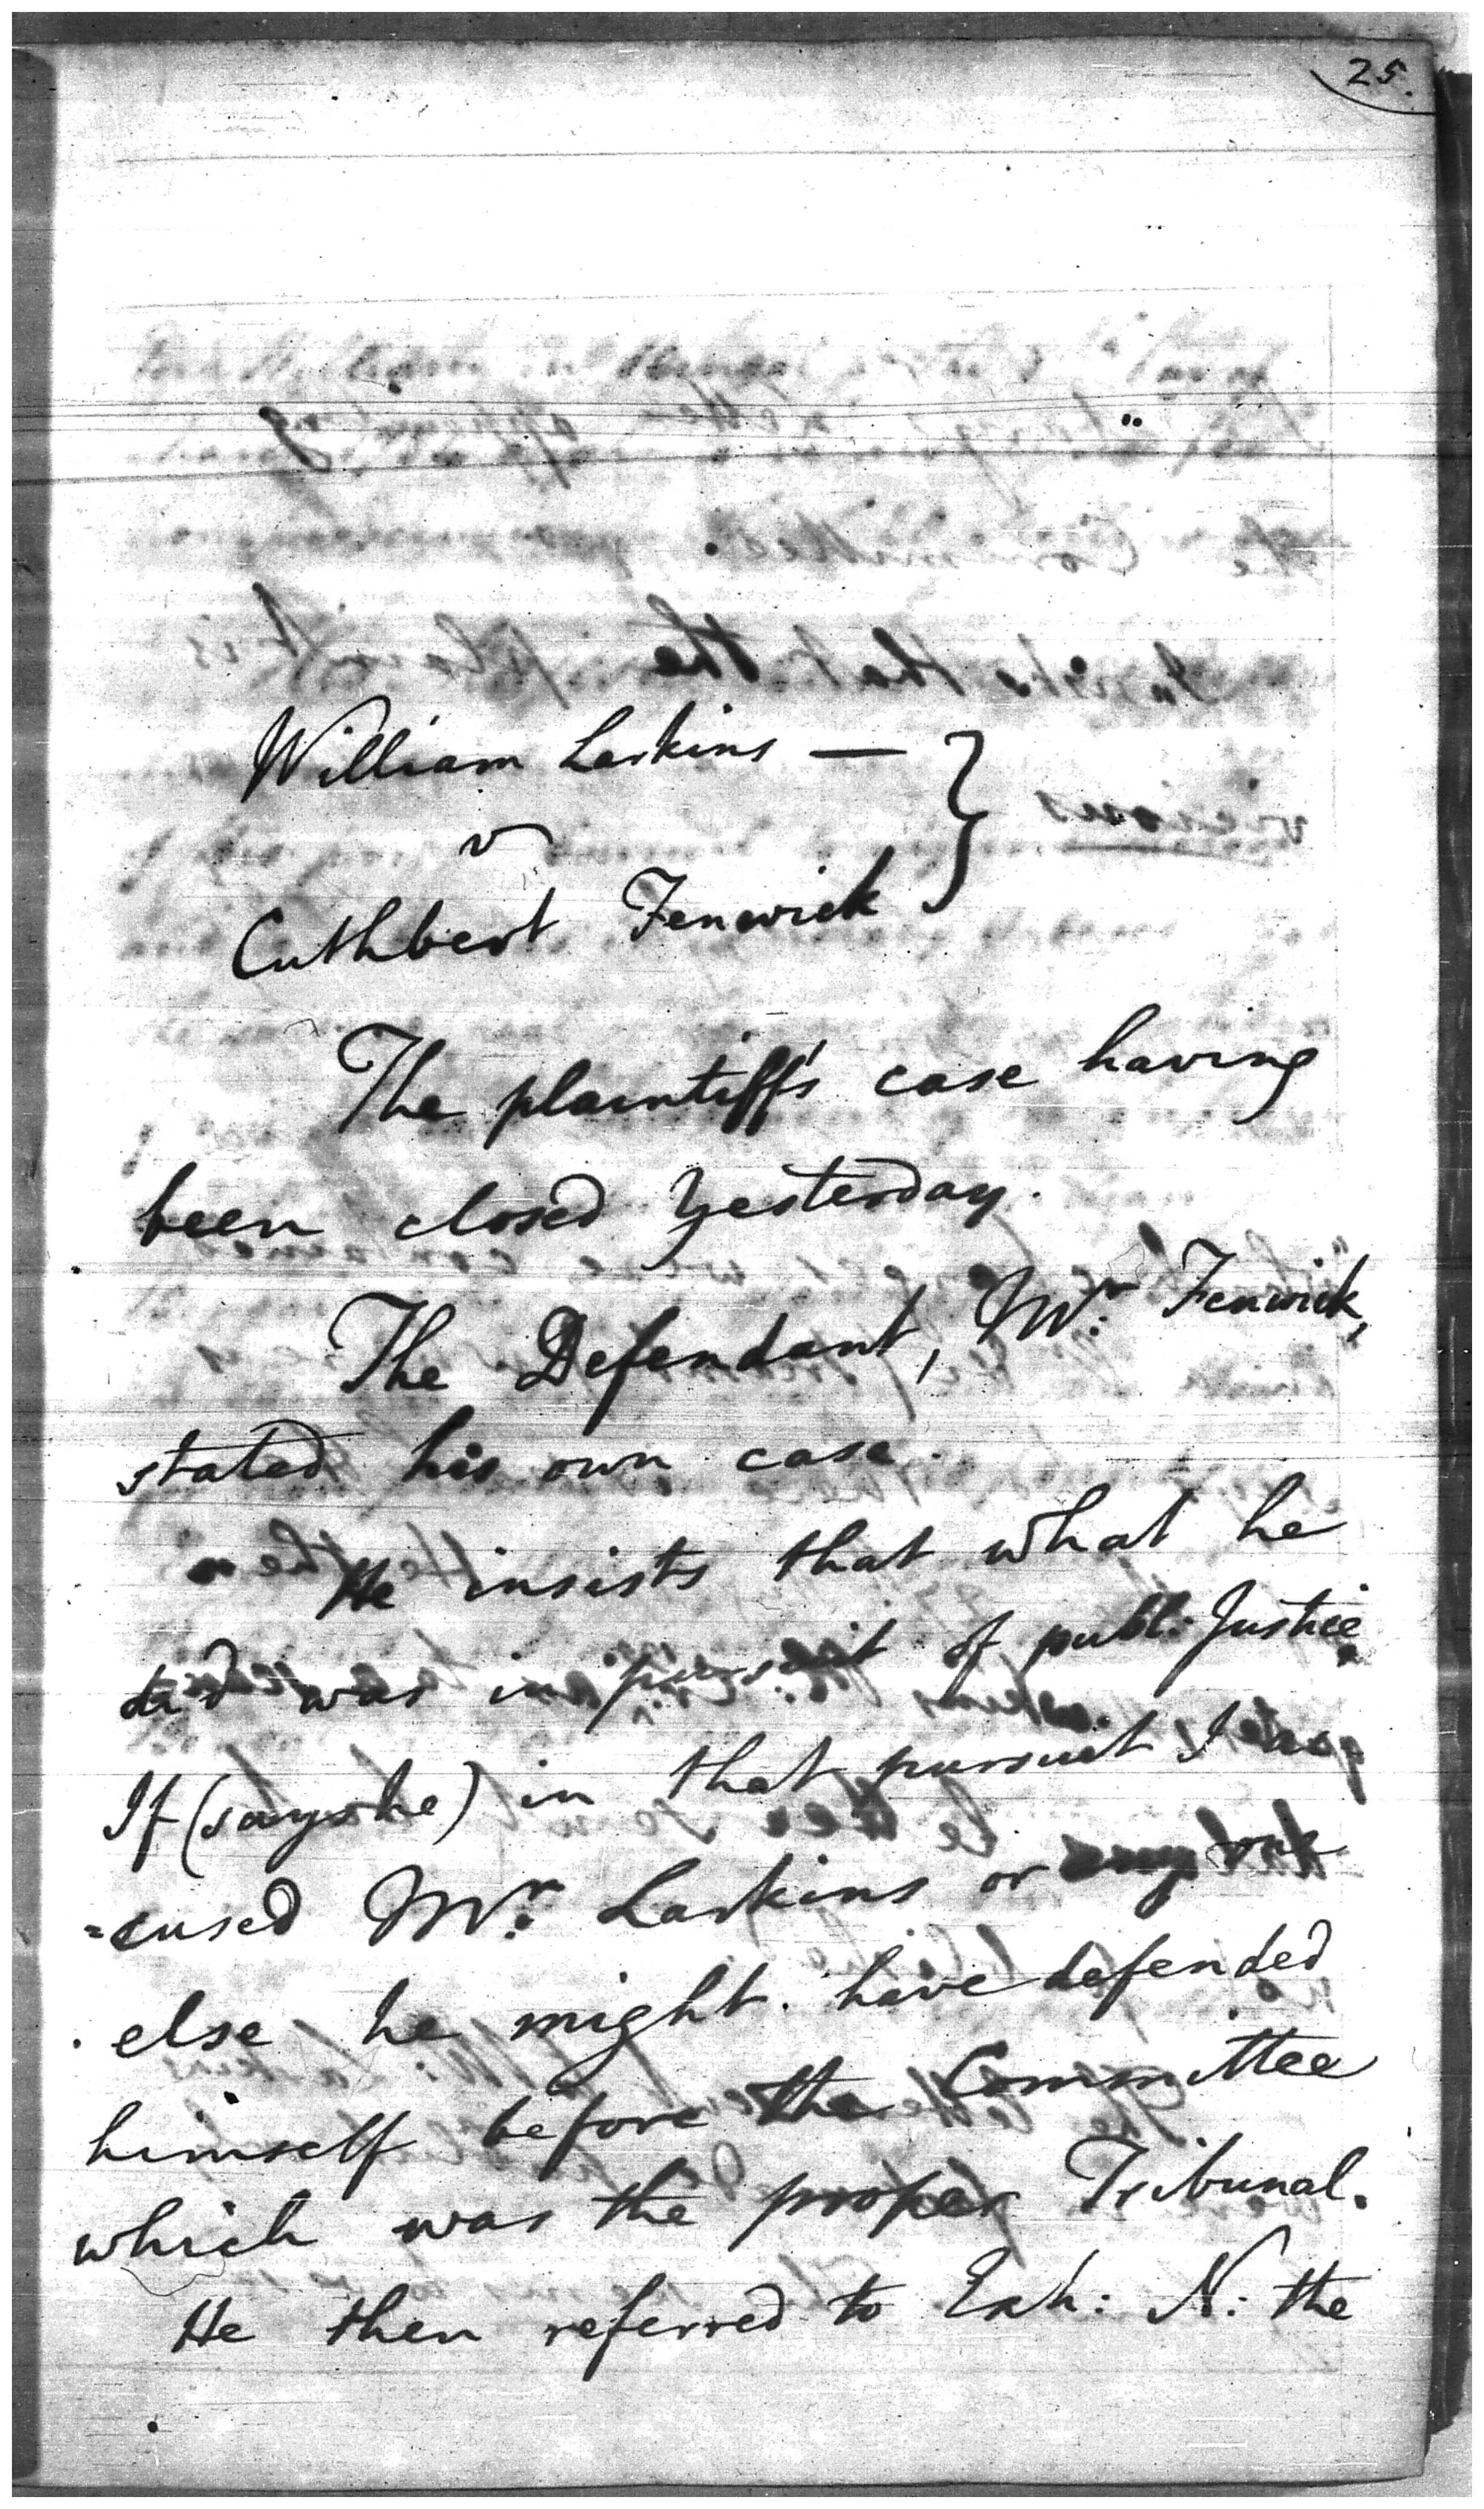 25.
William Larkins —
v
Cuthbert Fenwick
The plaintiff's case having
been closed Yesterday.
The Defendant, Mr. Fenwick,
stated his own case.
He insists that what he
did was in pursuit of publ: Justice
If (says he) in that pursuit I
=cused Mr. Larkins or any one
else he might have defended
himself before the Committee
which was the proper Tribunal.
He then referred to Exh: N: the